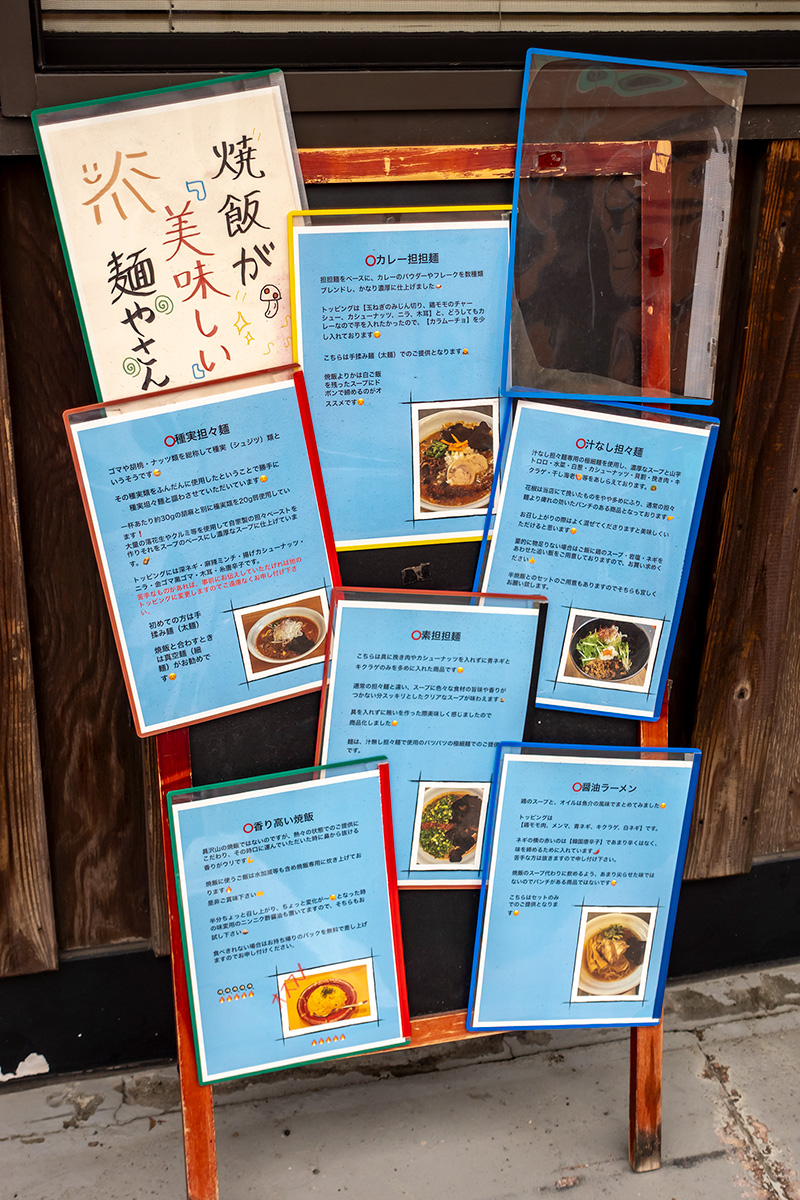 焼飯が
美味しい
麺やさん
カレー担担麺
担担麺をベースに、カレーのパウダーやフレークを数種類
ブレンドし、かなり濃厚に仕上げました🍛
トッピングは【玉ねぎのみじん切り、鶏モモのチャー
シュー、カシューナッツ、ニラ、木耳】と、どうしてもカ
レーなので芋を入れたかったので、【カラムーチョ】を少
し入れております😊
こちらは手揉み麺（太麺）でのご提供となります
焼飯よりかは白ご飯
を残ったスープにド
ボンで締めるのがオ
ススメです😊
種実担々麺
ゴマや胡桃・ナッツ類を総称して種実（シュジツ）類と
いうそうです
その種実類をふんだんに使用したということで勝手に
種実坦々麺と謳わさせていただいています
一杯あたり約30gの胡麻と別に種実類を20g弱使用してい
ます！
大量の落花生やクルミ等を使用して自家製の担々ペーストを
作りそれをスープのベースにし濃厚なスープに仕上げていま
す。
トッピングには深ネギ・麻辣ミンチ・揚げカシューナッツ・
ニラ・金ゴマ黒ゴマ・木耳・糸唐辛子です。
苦手なものがあれば、事前にお伝えしていただければ他の
トッピングに変更しますのでご遠慮なくお申し付け下さ
い。
初めての方は手
揉み麺（太麺）
焼飯と合わすとき
は真空麺（細
麺）がお勧めで
す
汁なし担々麺
汁なし担々麺専用の極細麺を使用し、濃厚なスープと山芋
トロロ・水菜・白葱・カシューナッツ・貝割・挽き肉・キ
クラゲ・干し海老等をあしらえております。
花椒は当店にて挽いたものをやや多めにふり、通常の担々
麺より痺れの効いたパンチのある商品となっております
お召し上がりの際はよく混ぜてくださりますと美味しくい
ただけると思います
量的に物足りない場合はご飯に鶏のスープ・岩塩・ネギを
あわせた追い飯をご用意しておりますので、お買い求めくだ
さい
半焼飯とのセットのご用意もありますのでそちらも宜しく
お願い致します。
素担担麺
こちらは具に挽き肉やカシューナッツを入れずに青ネギと
キクラゲのみを多めに入れた商品です
通常の担々麺と違い、スープに色々な食材の旨味や香りが
つかない分スッキリとしたクリアなスープが味わえます
具を入れずに賄いを作った際美味しく感じましたので
商品化しました
麺は、汁無し担々麺で使用のパツパツの極細麺でのご提供
です。
香り高い焼飯
具沢山の焼飯ではないのですが、熱々の状態でのご提供に
こだわり、その時口に運んでいただいた時に鼻から抜ける
香りがウリです
焼飯に使うご飯は水加減等も含め焼飯専用に炊き上げてお
ります🔥
是非ご賞味下さい
半分ちょっと召し上がり、ちょっと変化が〜となった時
の味変用のニンニク酢醤油も置いてますので、そちらもお
試し下さい
食べきれない場合はお持ち帰りのパックを無料で差し上げ
ますのでお申し付けください。
醤油ラーメン
鶏のスープと、オイルは魚介の風味でまとめてみました
トッピングは
【鶏モモ肉、メンマ、青ネギ、キクラゲ、白ネギ】です。
ネギの横の赤いのは【韓国唐辛子】であまり辛くはなく、
味を締めるために入れています🌶
苦手な方は抜きますので申し付け下さい。
焼飯のスープ代わりに飲めるよう、あまり尖らせた味では
ないのでパンチがある商品ではないです
こちらはセットのみ
でのご提供となりま
す